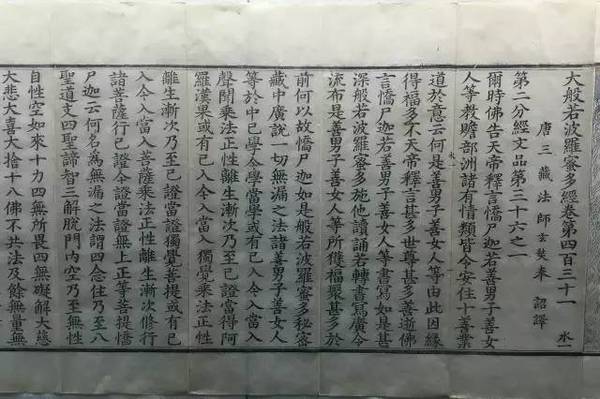 大般若波羅蜜多經卷第四百三十一 氷一
唐三藏法師玄奘奉 詔譯
第二分經文品第三十六之一
爾時佛告天帝釋言憍尸迦若善男子善女
人等教贍部洲諸有情類皆令安住十善業
道於意云何是善男子善女人等由此因緣
得福多不天帝釋言甚多世尊甚多善逝佛
言憍尸迦若善男子善女人等書寫如是甚
深般若波羅蜜多施他讀誦若轉書寫廣令
流布是善男子善女人等所獲福聚甚多於
前何以故憍尸迦如是般若波羅蜜多秘密
藏中廣說一切無漏之法諸善男子善女人
等於中已學今學當學或有已入今入當入
聲聞乘法正性離生漸次乃至已證當得阿
羅漢果或有已入今入當入獨覺乘法正性
離生漸次乃至已證當證獨覺菩提或有已
入今入當入菩薩乘法正性離生漸次修行
諸菩薩行已證今證當證無上正等菩提憍
尸迦云何名為無漏之法謂四念住乃至八
聖道支四聖諦智三解脫門內空乃至無性
自性空如來十力四無所畏四無礙解大慈
大悲大喜大捨十八佛不共法及餘無量無